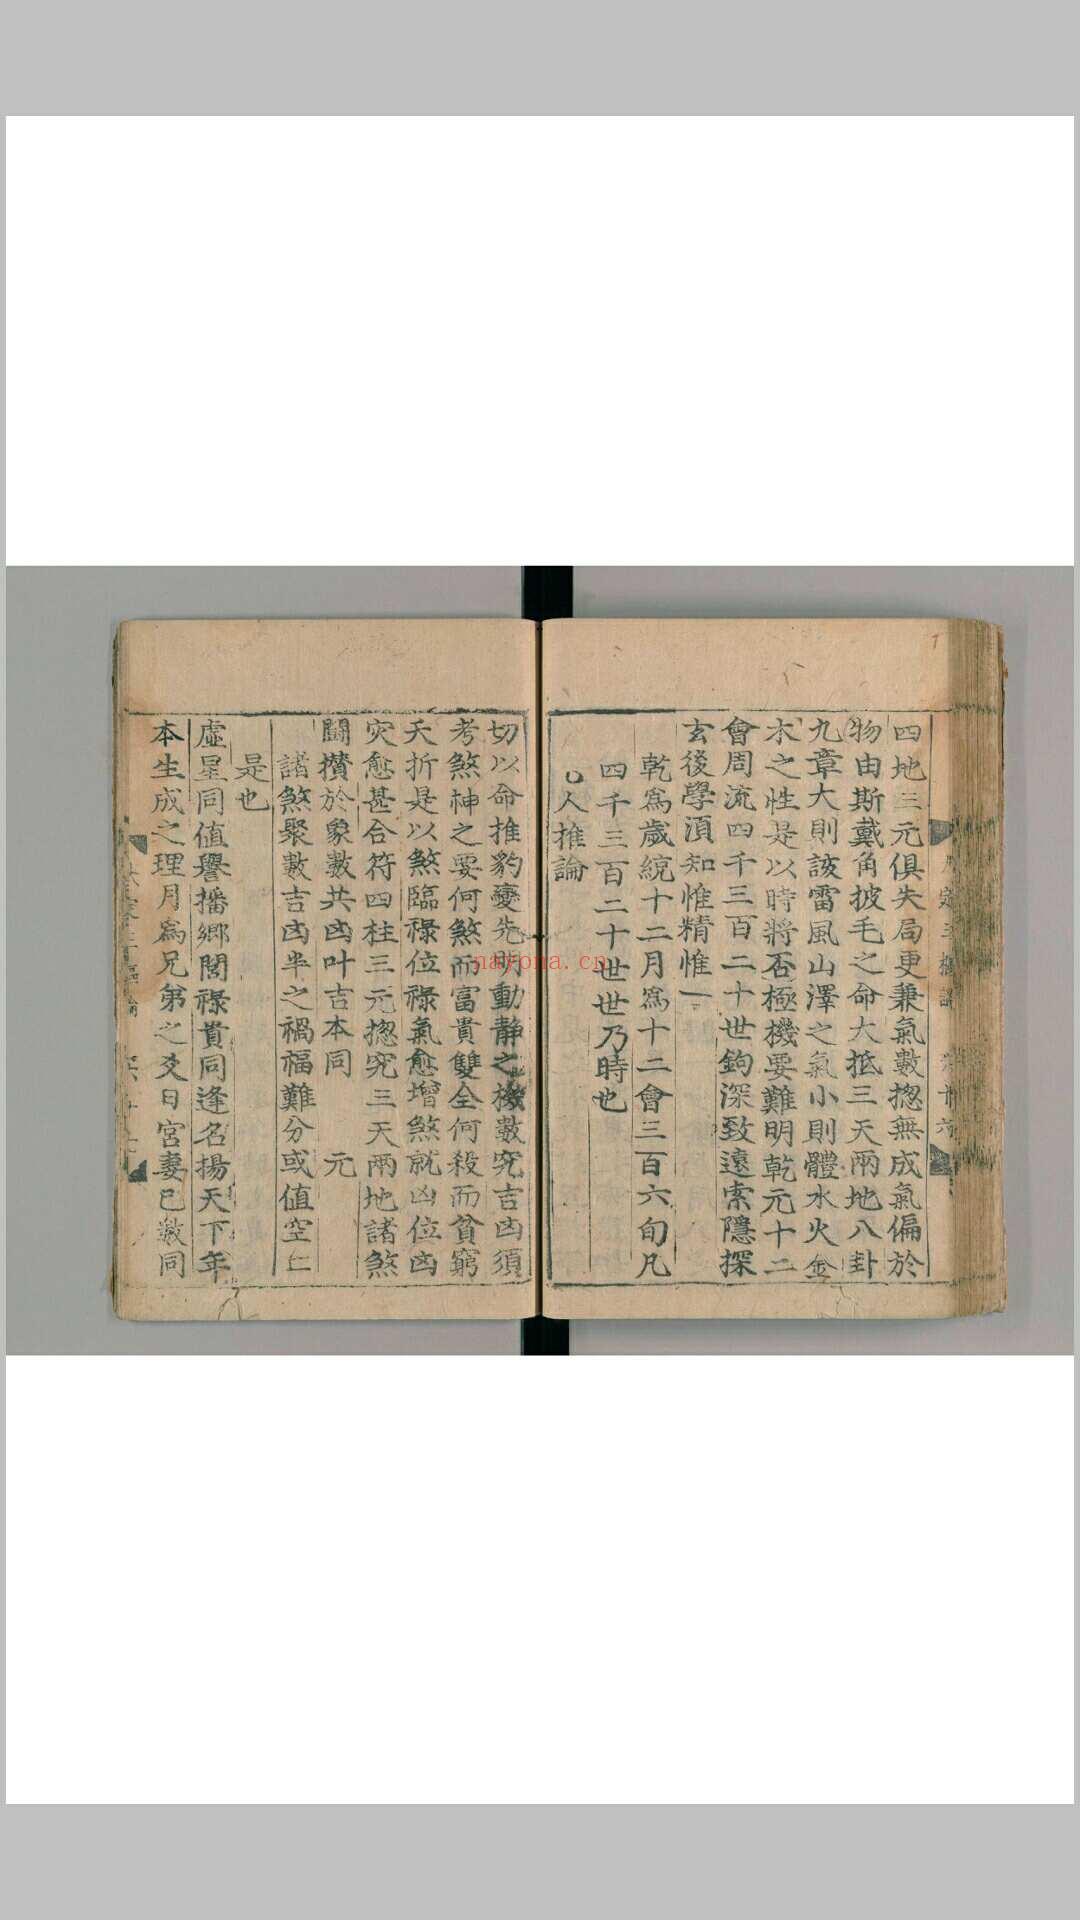 四地三元俱失局更兼氣數揔無成氣偏於
物由斯戴角披毛之命大抵三天兩地八卦
九章大則該雷風山澤之氣小則體水火金
木之性是以時將否極機要難明乾元十二
會周流四千三百二十世鉤深致遠索隱探
玄後學湏知惟精惟一
乾爲歲統十二月爲十二會三百六旬凡
四千三百二十世世乃時也
人推論
切以命推豹變先明動静之機數究吉凶須
考煞神之要何煞而富貴雙全何殺而貧窮
夭折是以煞臨祿位祿氣愈增煞就凶位凶
灾愈甚合符四柱三元揔究三天兩地諸煞
鬪攅於象數共凶叶吉本同 元
諸煞聚數吉凶半之禍福難分或值空亡
是也
虛星同值譽播鄉閭祿貴同逢名揚天下年
本生成之理月爲兄弟之爻日宮妻已數同
nayona.cn